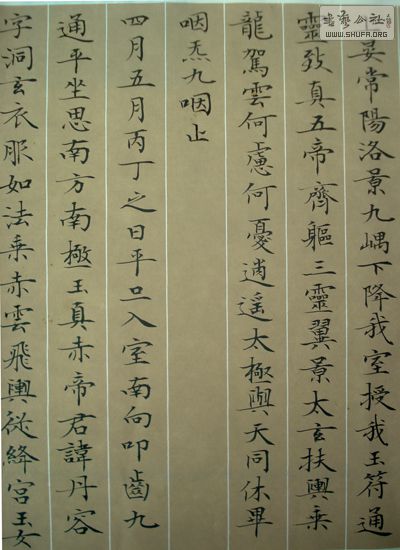 晏常陽洛景九嵎下降我室授我玉符通
靈致真五帝齊軀三靈翼景太玄扶輿乗
龍駕雲何慮何憂逍遥太極與天同休畢
咽炁九咽止
四月五月丙丁之日平旦入室南向叩齒九
通平坐思南方南極玉真赤帝君諱丹容
字洞玄衣服如法乗赤雲飛輿従絳宮玉女
书艺公社
WWW.SHUFA.ORG